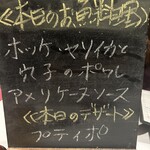 《本日のお魚料理》
ホッケ・ヤリイカと
穴子のポワレ
アメリケーヌソース
《本日のデザート》
プティポ